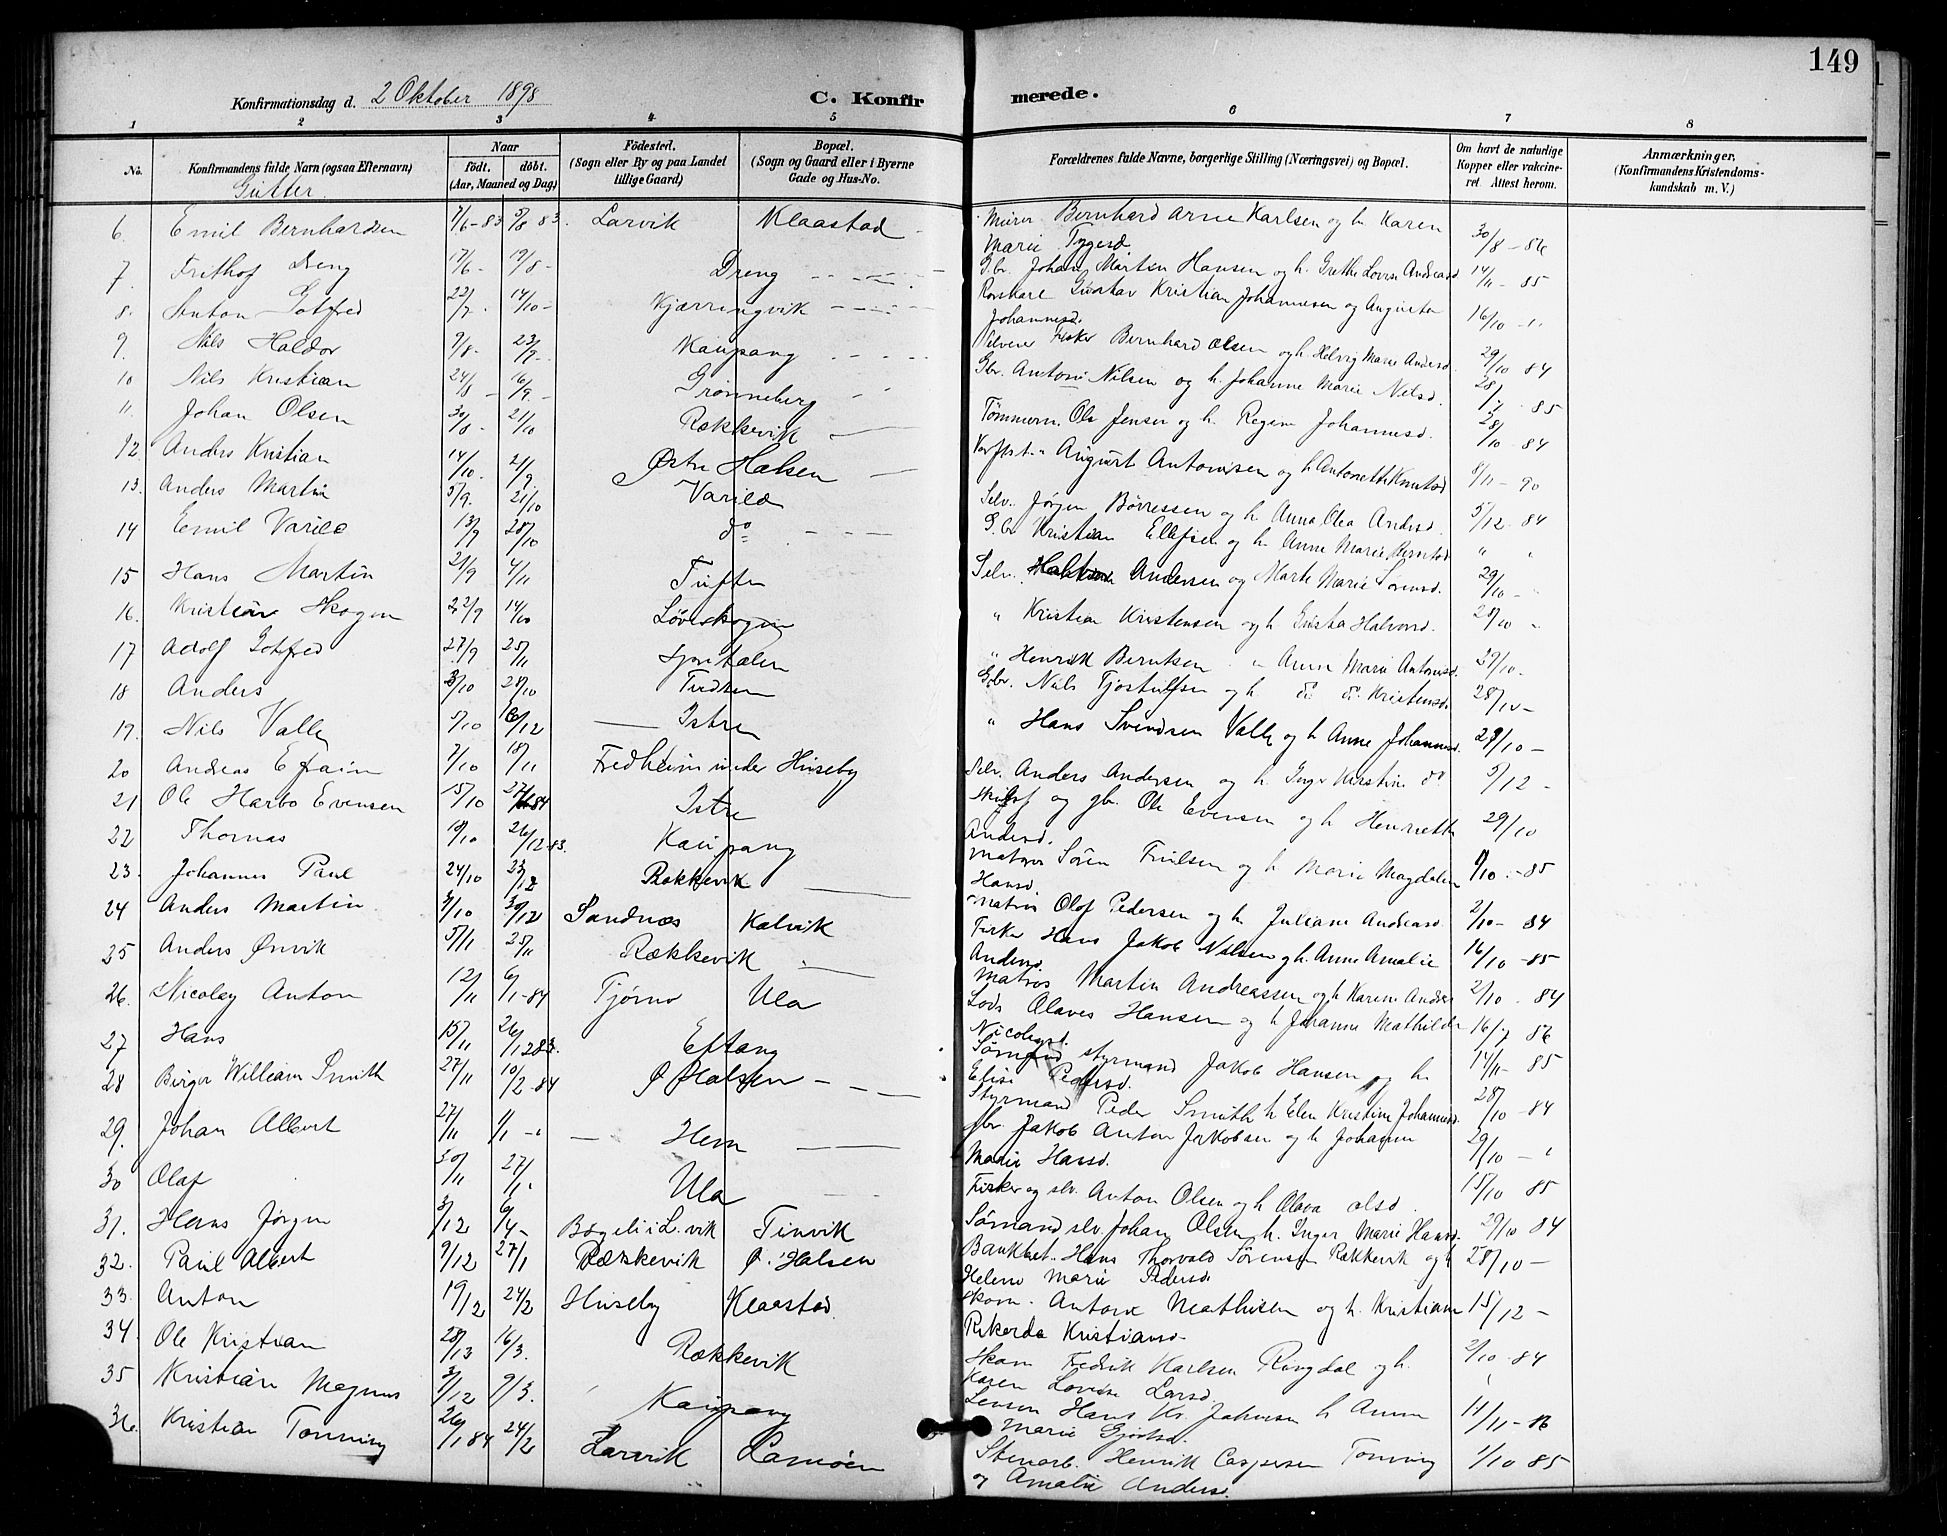 149
Konfirmationsdag d. 2 Oktober 1898
C. Konfirmerede.
1 2 3 4 5 6 7 8
No.
Konfirmandens fulde Navn (ogsaa Efternavn)
Gutter
Naar
født. døbt.
(Aar, Maaned og Dag)
Fødested.
(Sogn eller By og paa Landet
tillige Gaard)
Bopæl.
(Sogn og Gaard eller i Byerne
Gade og Hus-No.
Forældrenes fulde Navne, borgerlige Stilling (Næringsvei) og Bopæl.
Om havt de naturlige
Kopper eller vakcine-
ret. Attest herom.
Anmærkninger,
(Konfirmandens Kristendoms-
kundskab m. V.)
6. Emil Bernhardsen 7/6-83 5/8 83. Larvik Klaastad Murer Bernhard Arne Karlsen og h. Karen 30/8-86
Marie
7. Frithof Dreng 17/6- 19/8- Dreng Gbr. Johan Mårten Hansen og h. Grethe Lovise Andreasd 14/11-85
8. Anton Gotfred 22/7- 14/10- Kjærringvik Gustav Kristian Johannesen og Augusta 16/10
Johannesd.
9. Nils Haldor 9/8- 23/9- Kaupang Fisker Bernhard Olsen og h. Helvig Marie Andersd. 29/10 84
10 Nils Kristian 24/8- 16/9- Grønneberg Gbr. Anton Nilsen og h. Johanne Marie Nilsd. 85
11. Johan Olsen 30/8- 21/10 Rækkevik Tømmerm. Ole Jensen og h. Regine Johannesd. 28/10-84
12. Anders Kristian 14/10. 21/9. Østre Halsen August Antonisen og h. Antonette Knutsd 8/11-90
13. Anders Martin 5/9. 21/10 Varild Selv. Jørgen Børressen og h. Anna Olea Andersd. 5/12-84
14 Emil Varild 13/9 28/10 do G.br Kristian Ellefsen og h. Anne Marie " "
15 Hans Martin 21/9 4/11 Tuften Selv. Andersen og Marte Marie Sørensd. 29/10-
16. Kristian Skogen 22/9 14/10 Løveskogen " Kristian Kristensen og h. Halvorsd. 28/10
17 Adolf Gotfred 27/9 25/11 " Henrik Berntsen " Anne Marie Antonsd. 29/10.
18 Anders 3/10 28/10 Tudsen Gbr. Nils Tjostulfsen og h. do do Kristensd. 28/10-
19. Nils Valle 5/10 16/12 — Istre " Hans Svendsen Valle og h Anne Johannesd. 29/10-
20 Andreas Efraim 7/10 18/11 Fredheim under Huseby Selv. Anders Andersen og h. Inger Kirstine do 5/12-
21 Ole Harbo Evensen 15/10 84 Istre og gbr. Ole Evensen og h Henriette 29/10
Andersd.
22 Thomas 19/10 26/12-83. Kaupang Matros Søren og h Maren Magdalene 9/10-85
Hansd.
23. Johannes Paul 24/10 23/12 Rækkevik Matros Olaf Pedersen og h. Juliane Andreasd. 2/10-84
24 Anders Martin 31/10 30/12 Sandnæs Kalvik Fisker Hans Jakob Nilsen og h. Anne Amalie 16/10-85
Andersd.
25 Anders Ønvik 5/11 25/11 Rækkevik Matros Martin Andreassen og h Karen Anders 2/10-84
26. Nicolay Anton 12/11 6/1-84 Tjørnø Ula Lods Olaves Hansen og h Johanne Mathilde 16/7 86
Nicolaysd.
27 Hans 15/11 26/12 83. Eftang Sømand styrmand Jakob Hansen og h. 14/11-85
Elise Pedersd.
28 Birger William Smith 27/11 10/2-84 Ø Halsen Styrmand Peder Smith h Elen Kristine Johannesd. 28/10-84
29. Johan Albert 27/11 1/1 — Hem gbr. Jakob Anton Jakobsen og h Johanne 29/10 -
Marie Hansd.
30 Olaf 30/11 27/1. Ula Fisker og slv. Anton Olsen og h Olava Olsd. 15/10 85
31. Hans Jørgen 3/12 6/4- Bøgeli i L.vik Tinvik Sømand slv. Johan Olsen h. Inger Marie Hansd. 29/10 84
32. Paul Albert 9/12 27/1 Rækkevik Ø. Halsen Hans Thorvald Sørensen Rækkevik og h 28/10-
Helene Marie Pedersd.
33. Anton 19/12 24/2 Huseby Klaastad Skom. Anton Mathisen og h. Kristiane 15/12-
Rikarda Kristiansd.
34. Ole Kristian 28/13 16/3. Rækkevik Skom Fredrik Karlsen Ringdal og h. 2/10-84
Karen Lovise Larsd.
35 Kristian Magnus 31/12 9/3. Kaupang Hans Kr. Johnsen h Anne 11/11-86
Marie
36. Kristian Tonning 26/1 84 24/2 Larvik Lamøen Stenarb. Henrik Caspersen Tonning 1/10 85
og Amalie Andersd.